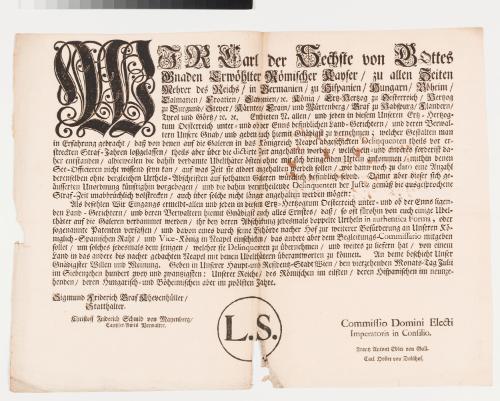 WIR Carl der Sechste von GOttes
Gnaden Erwöhlter Römischer Kayser / zu allen Zeiten
Mehrer des Reichs / in Germanien / zu Hispanien / Hungarn / Böheim /
Dalmatien / Croatien / Sclavonien / rc. König / Ertz-Hertzog zu Oesterreich / Hertzog
zu Burgund / Steyer / Kärnten / Crain / und Würtenberg / Graf zu Habspurg / Flandern /
Tyrol und Görtz / rc. rc. Entbieten N. allen / und jeden in diesem Unseren Ertz-Hertzog-
tum Oesterreich unter- und ober Enns befindlichen Land-Gerichtern / und deren Verwal-
tern Unsere Gnad / und geben euch hiemit Gnädigst zu vernehmen / welcher Gestalten man
in Erfahrung gebracht / daß von denen auf die Galeren in das Königreich Neapel abgeschickten Delinquenten theils vor er-
streckten Straf-Jahren loßgelassen / theils aber über die Zeit angehalten worden /
her entstanden / allweilen die dahin verdamte Ubelthäter öfters ohne mitgebrachten Urthl ankommen / mithin denen
See-Officieren nicht wissend seyn kan / auf was Zeit sie alldort angehalten werden sollen /
derenselben ohne dergleichen Urthels-Abschriften auf sothanen Galeren würcklich befindlich seynd. Damit aber dieser sich ge-
äusserten Unordnung künftighin vorgebogen / und die dahin verurtheilende Delinquenten der Justiz gemäß die ausgesprochene
Straf-Zeit unabbrüchlich vollstrecken / auch über solche nicht länger angehalten werden mögen:
Als befehlen Wir Eingangs ermeldt-allen und jeden in diesem Ertz-Hertzogtum Oesterreich unter- und ob der Enns seyen-
den Land-Gerichtern / und deren Verwaltern hiemit Gnädigst auch alles Ernstes / daß / so oft
thäter auf die Galeren verdammet werden / ihr bey deren Abschickung jedesmal doppelte Urtheln in authentica Forma / oder
sogenannte Patenten verfassen / und davon eines durch seine Behörde nacher Hof zur weiterer Beförderung an Unseren Kö-
niglich-Spanischen Rath / und Vice-König in Neapel einschicken / das andere aber dem Begleitungs-Commissario mitgeben
sollet / um solches jedesmals dem jenigen / welcher sie Delinquenten zu übernehmen / und weiters zu liefern hat / von einem
Land in das andere bis nacher gedachten Neapel mit denen Ubelthätern überantworten zu können. An deme beschicht Unser
Gnädigster Willen und Meinung. Geben in Unserer Haupt- und Residentz-Stadt Wien / den vierzehenden Monats-Tag Julii
im Siebenzehen hundert zwey und zwantzigsten / Unserer Reiche / des Römischen im eilften / deren Hispanischen im neunze-
henden / deren Hungarisch- und Böheimischen aber im zwölften Jahre.
Sigmund Friderich Graf Khevenhüller /
Statthalter.
Christoff Friderich Schmid von Mayenberg /
Cantzler-Amts Verwalter.
L.S.
Commissio Domini Electi
Imperatoris in Consilio.
Frantz Antoni Edler von
Carl Hoser von